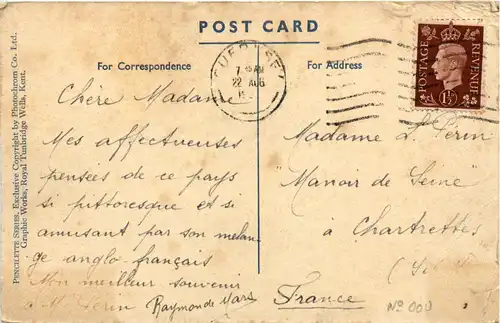 POST CARD
For Correspondence
For Address
GUERNSEY
22 AUG
POSTAGE
REVENUE
1½D
Chère Madame
Mes affectueuses
pensées de ce pays
si pittoresque et si
amusant par son melan-
ge anglo-français
Mon meilleur souvenir
à M. Perin Raymond de
Madame L. Perin
"Manoir de Seine"
à Chartrettes
France
No 009
PENOLETTE SERIES. Exclusive Copyright by Photochrom Co. Ltd.
Graphic Works, Royal Tunbridge Wells, Kent.